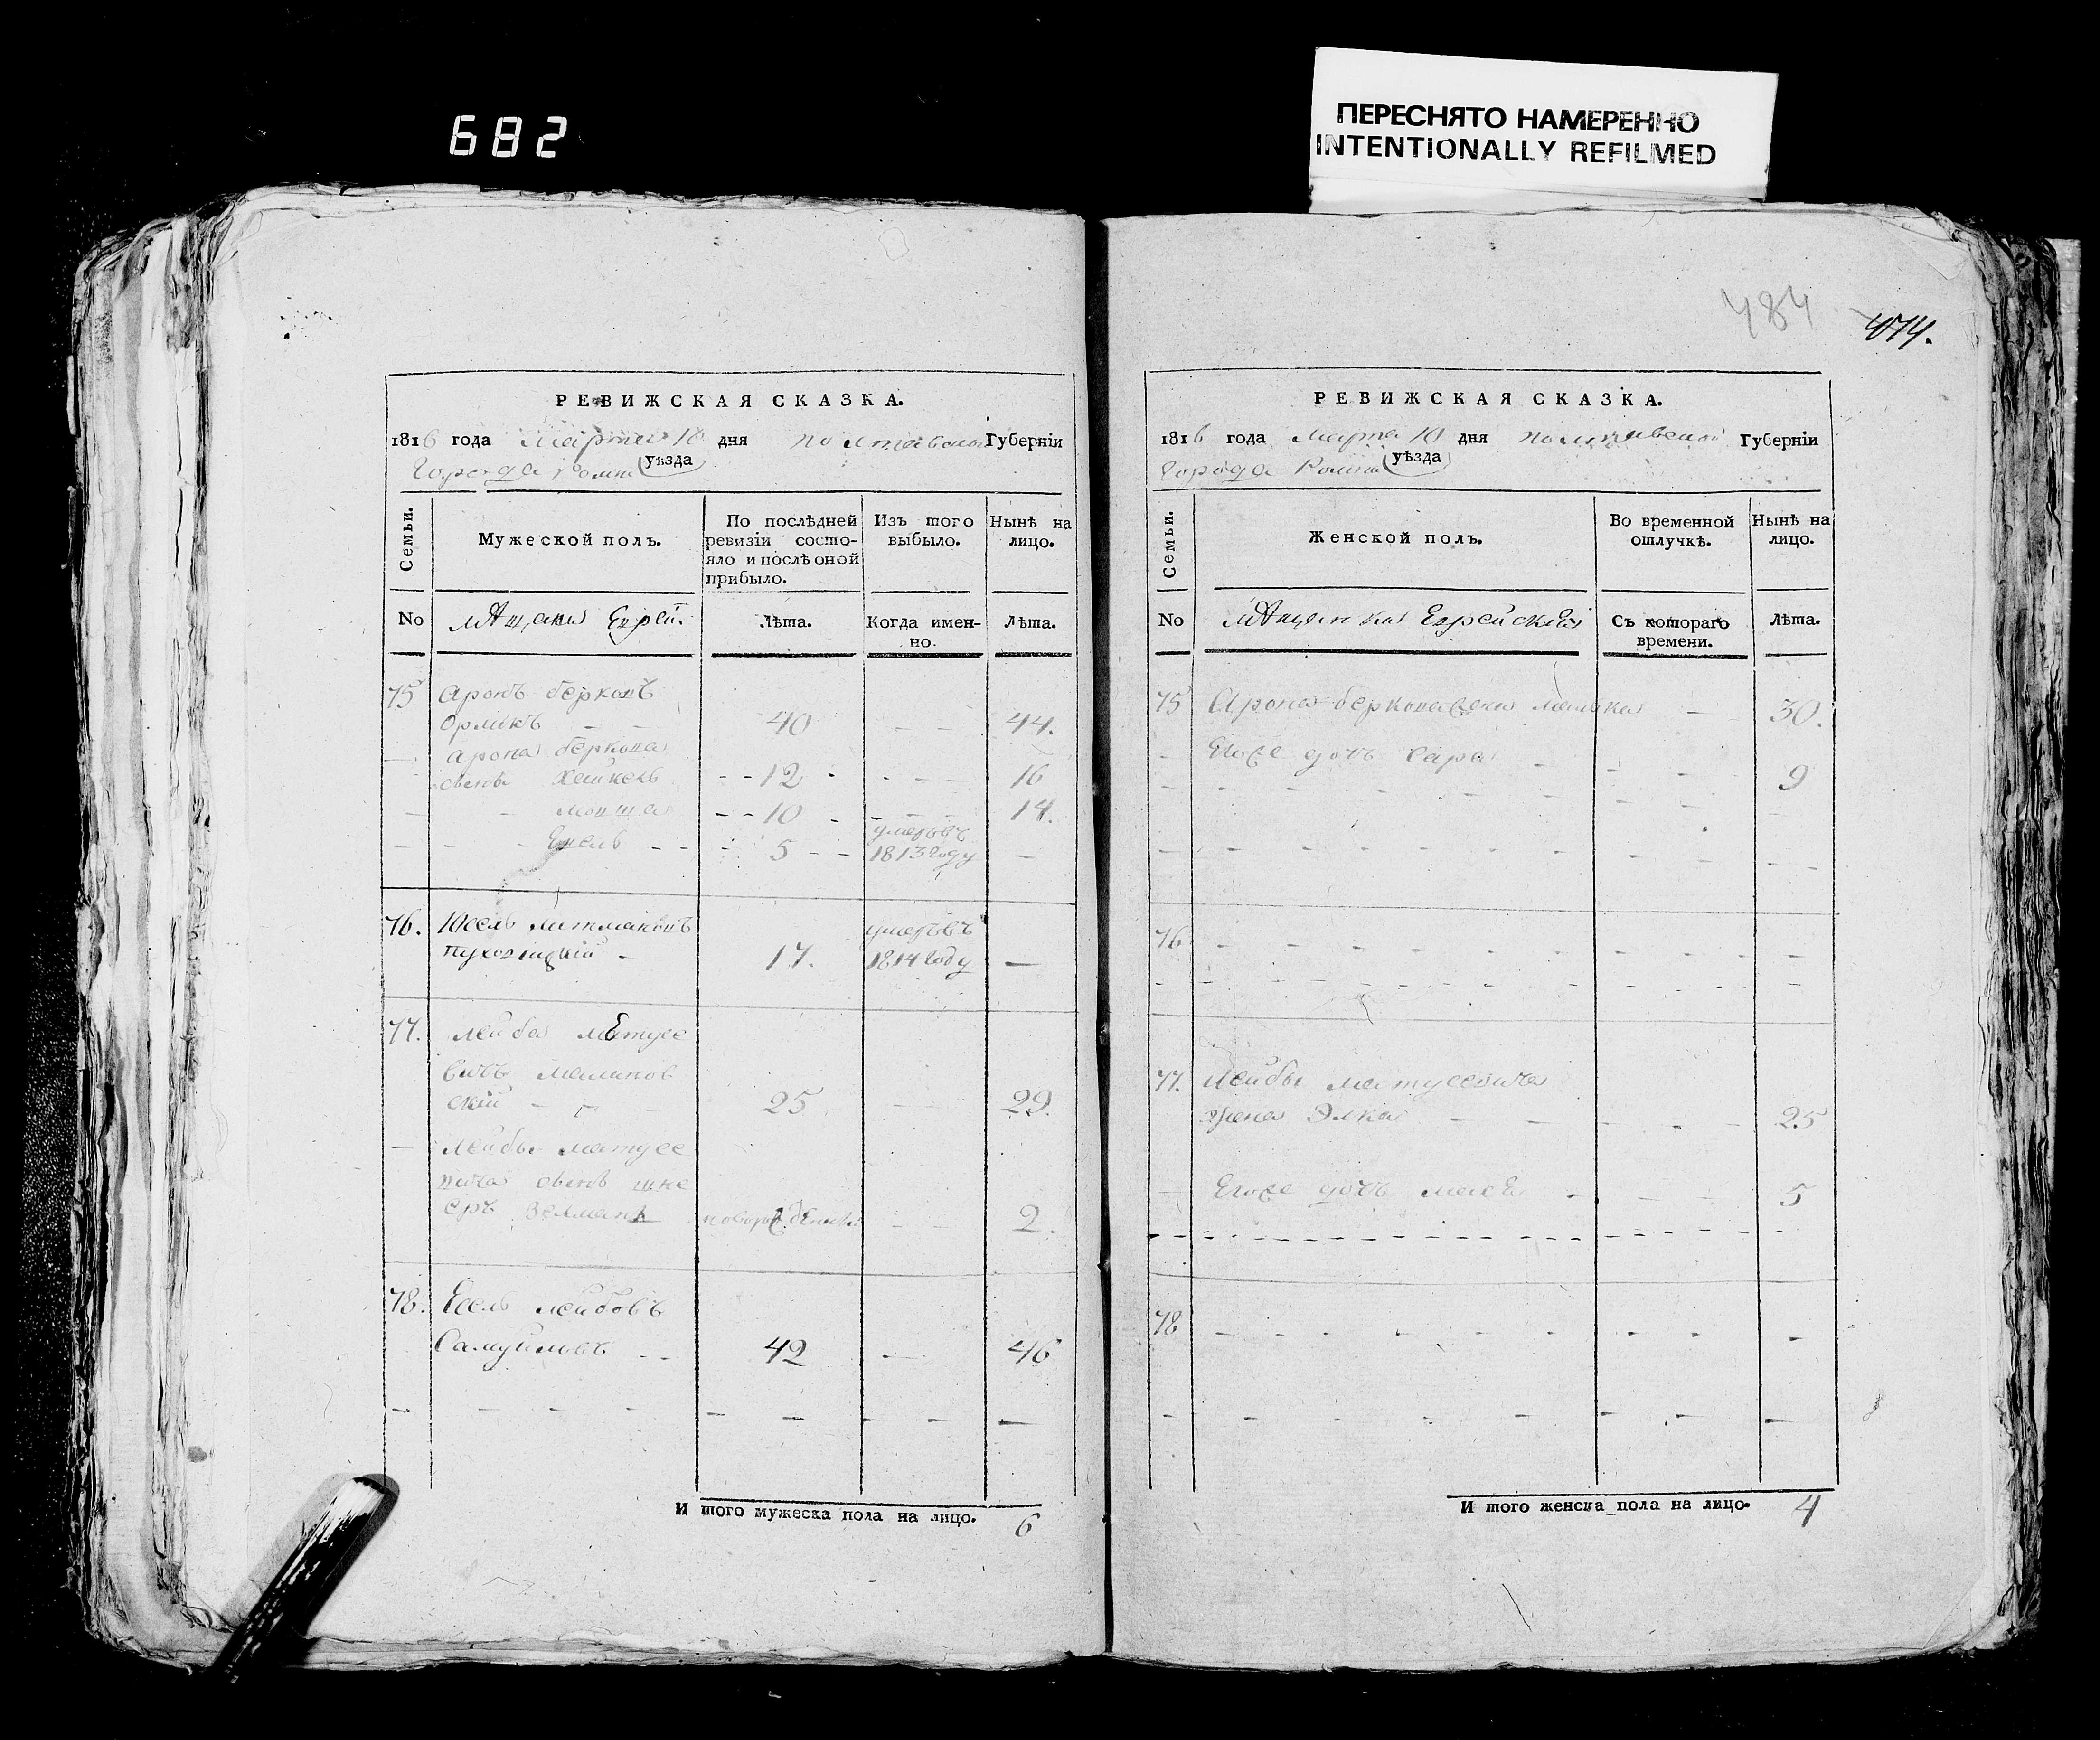 682
ПЕРЕСНЯТО НАМЕРЕННО
INTENTIONALLY REFILMED
484
474.
РЕВИЖСКАЯ СКАЗКА.
1816 года Марта 10 дня Полтавской Губернiи
Города Ромна уѣзда
Семьи.
Мужеской полъ.
По послѣдней ревизiи состо-
яло и послѣ оной
прибыло.
Изъ того выбыло.
Нынѣ на лицо.
No
Еврей.
Лѣта.
Когда имен-
но.
Лѣта.
75 Аронъ Берковъ
Орликъ - - 40 - - 44.
Арона Беркова
сынове Хаимкель - - 12 - - - - 16
Мовша - - 10 - - - - 14.
- - - - - - 5 - - умеръ въ
1813 году -
76. Юсель
17. умеръ въ
1814 году —
77. Лейба Матусе
вичъ
скiй - - 25 — 29.
- Лейбы Матусе
вича сынъ Шне
еръ Залманъ новорожденный - - 2.
78. Есель Лейбовъ
Самуйловъ - - 42 — 46
И того мужеска пола на лицо. 6
РЕВИЖСКАЯ СКАЗКА.
1816 года Марта 10 дня Полтавской Губернiи
Города Ромна уѣзда
Семьи.
Женской полъ.
Во временной
отлучкѣ.
Нынѣ на
лицо.
No
Еврейскiя
Съ котораго
времени.
Лѣта.
75 Арона Берковa жена - 30.
- Егоже дочь Сара - - - 9
76
77. Лейбы Матусевича
жена Элка - - - - - 25
Егоже дочь - - - 5
78
И того женска пола на лицо. 4